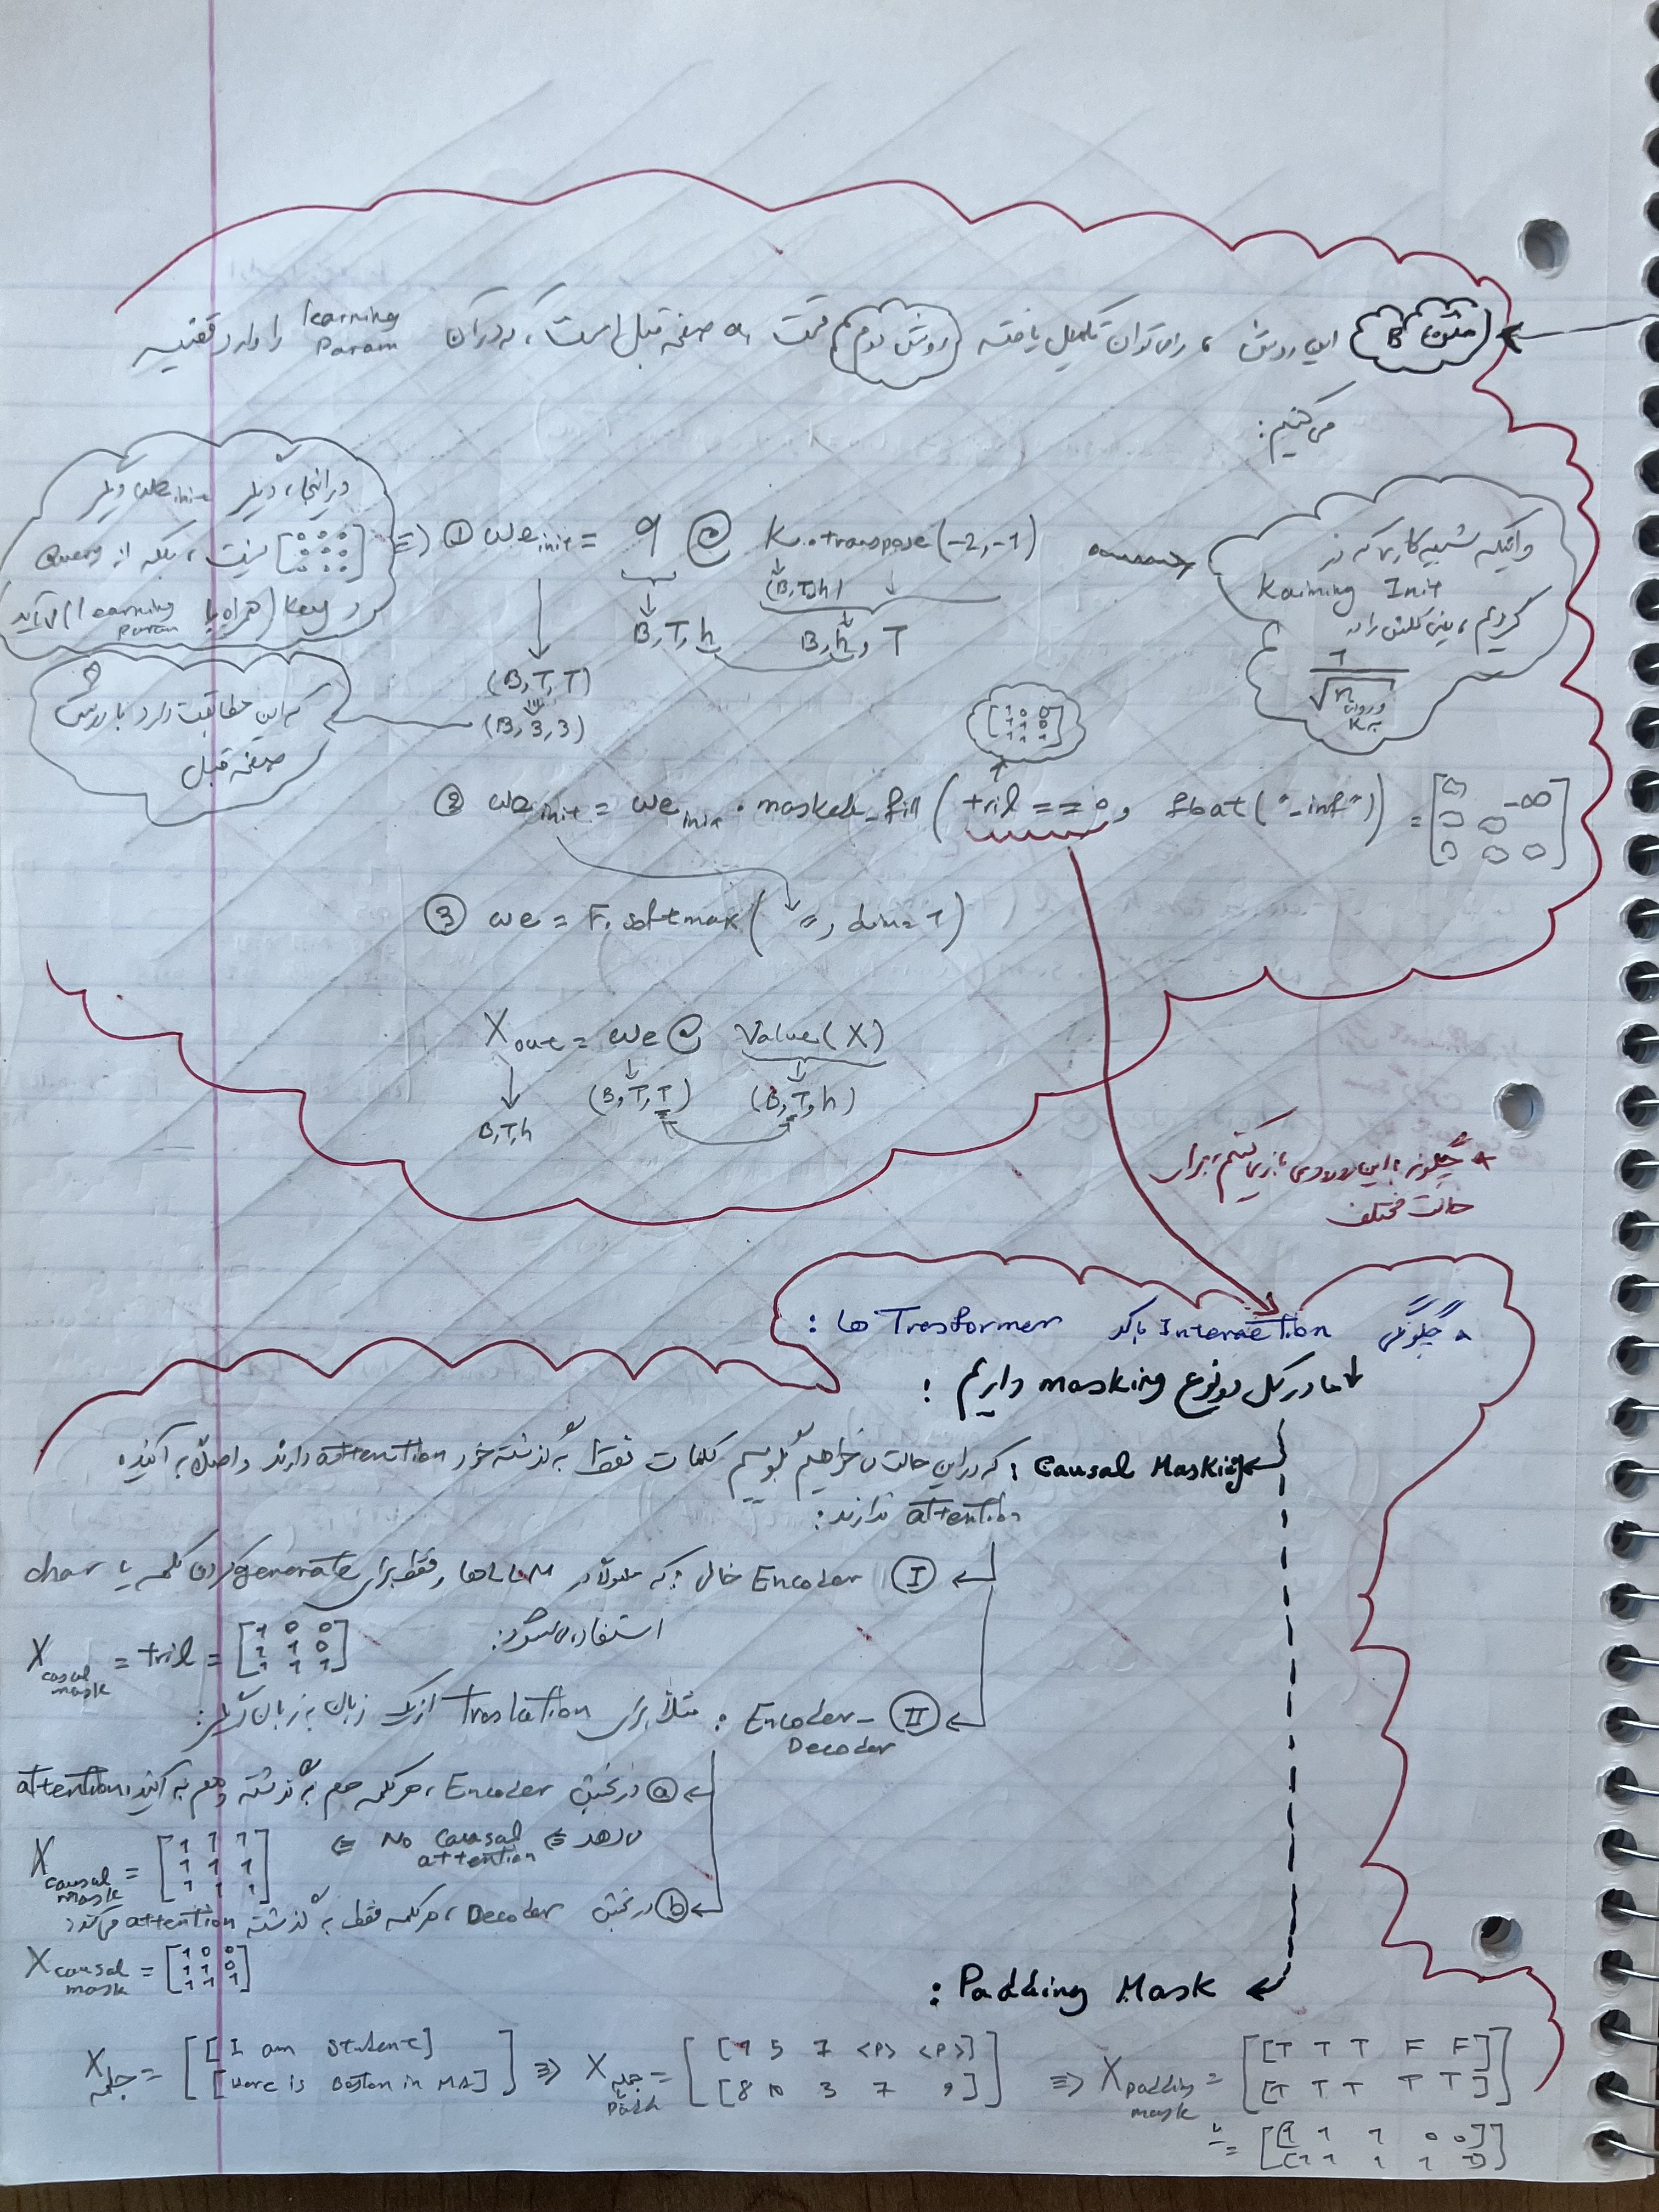 این روش را می‌توان تکمیل یافته روش دوم قسمت a، صفحه قبل است، که در آن learning param را وارد قضیه
می‌کنیم:
در اینجا، دیگر we init دیگر
[0 0 0
0 0 0
0 0 0] نیست، بلکه از Query
و Key (همراه با learning param) می‌آید
① we init = q @ K.transpose(-2,-1)
(B,T,h)
B,T,h
B,h,T
(B,T,T)
(B,3,3)
که این مطابقت دارد با روش
صفحه قبل
شبیه کاری که در
Kaiming Init
کردیم، یعنی کلش را در
1/√n
[1 0 0
1 1 0
1 1 1]
② we init = we init.masked_fill(tril == 0, float("-inf")) = [0 -∞
0 0
0 0 0]
③ we = F.softmax( " , dim=1)
Xout = we @ Value(X)
(B,T,T) (B,T,h)
B,T,h
* چگونه با این ورودی بازی کنیم، برای
حالت مختلف
چگونگی Interaction با کد Trasformer ها:
ما در کل دو نوع masking داریم:
Causal Masking: که در این حالت می‌خواهیم بگوییم کلمات فقط به گذشته خود attention دارند و اصلاً به آینده
attention ندارند:
Ⅰ Encoder خالی: که معمولاً در LLMها و فقط برای generate کردن کلمه یا char
استفاده می‌شود:
X casual mask = tril = [1 0 0
1 1 0
1 1 1]
Ⅱ Encoder-Decoder: مثلاً برای Traslation از یک زبان به زبان دیگر:
ⓐ در بخش Encoder، هر کلمه هم به گذشته و هم به آینده attention
می‌دهد ⇐ No causal attention ⇐
X causal mask = [1 1 1
1 1 1
1 1 1]
ⓑ در بخش Decoder، هر کلمه فقط به گذشته attention می‌کند:
X causal mask = [1 0 0
1 1 0
1 1 1]
Padding Mask:
X جمله = [[I am student]
[Here is Boston in MA]] ⇒ X جمله با padd = [[1 5 7 <P> <P>]
[8 10 3 7 9]] ⇒ X padding mask = [[T T T F F]
[T T T T T]]
یا = [[1 1 1 0 0]
[1 1 1 1 1]]